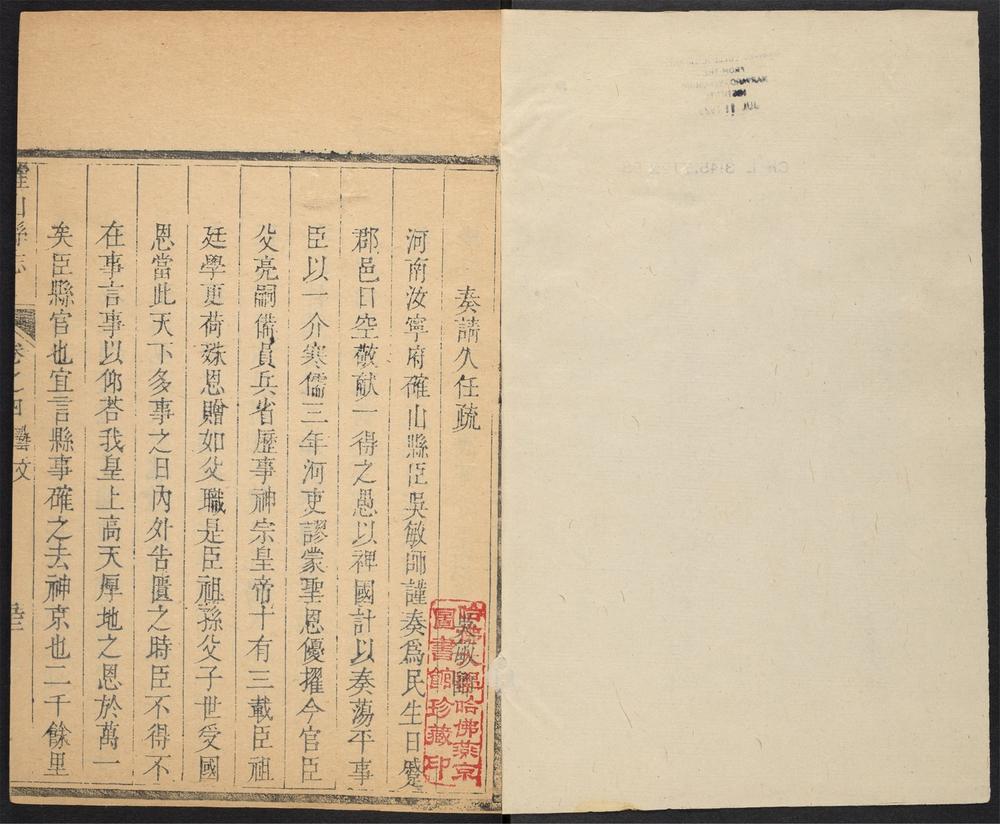 奏請久任疏
吳敏師
河南汝寧府確山縣臣吳敏師謹奏爲民生日蹙
郡邑日空敬献一得之愚以裨國計以奏蕩平事
臣以一介寒儒三年河吏謬蒙聖恩優擢今官臣
父亮嗣備員兵省歷事神宗皇帝十有三載臣祖
廷學更荷殊恩贈如父職是臣祖孫父子世受國
恩當此天下多事之日內外告匱之時臣不得不
在事言事以仰荅我皇上高天厚地之恩於萬一
矣臣縣官也宜言縣事確之去神京也二千餘里
確山縣志
卷之四 藝文
哈佛大學哈佛燕京
圖書館珍藏印
FROM THE
JUL 11